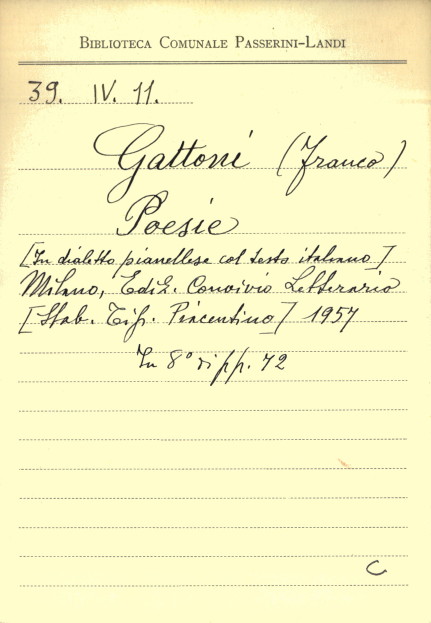 BIBLIOTECA COMUNALE PASSERINI-LANDI
39. IV. 11.
Gattoni (Franco)
Poesie
[In dialetto pianellese col testo italiano]
Milano, Ediz. Convivio Letterario
[Stab. Tip. Piacentino] 1957
In 8° di pp. 72
C